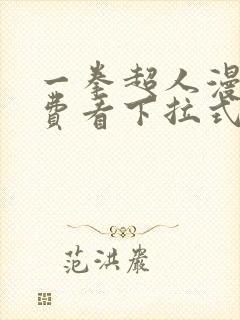 一拳超人漫
费看下拉式
范洪岩